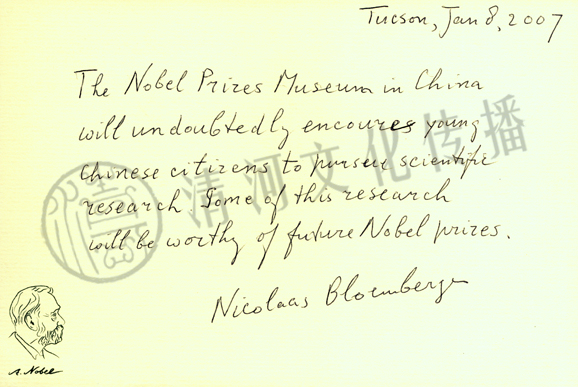 Tucson, Jan 8, 2007
The Nobel Prizes Museum in China
will undoubtedly encoures young
chinese citizens to pursue scientific
research. Some of this research
will be worthy of future Nobel prizes.
Nicolaas Bloembergen
清河文化传播
A. Nobel